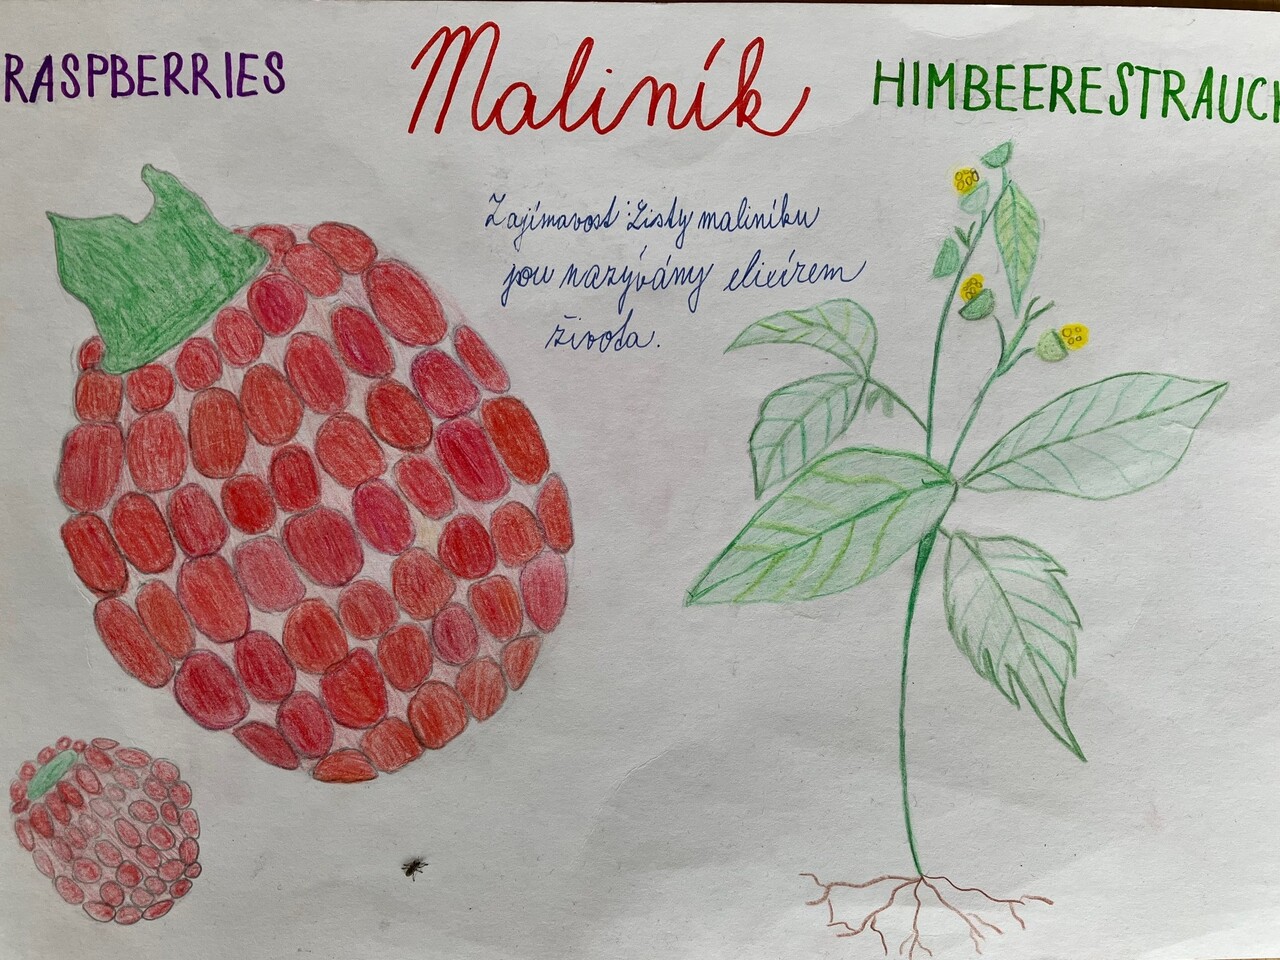 RASPBERRIES
Maliník
HIMBEERESTRAUCH
Zajímavost: Listy maliníku
jsou nazývány elixírem
života.